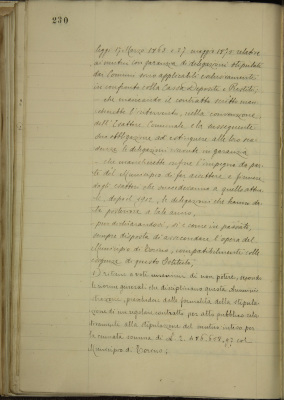 230
leggi 17 Marzo 1868 e 27 maggio 1875 relative
ai mutui con garanzia di delegazioni stipulati
dai Comuni sono applicabili esclusivamente
in confronto colla Cassa Depositi e Prestiti;
- che mancando il contratto scritto man-
cherebbe l'intervento, nella convenzione,
dell'Esattore Comunale e la conseguente
sua obbligazione ad estinguere alle loro sca-
denze le delegazioni rimesse in garanzia
- che mancherebbe infine l'impegno da par-
te del Municipio di far accettare e firmare
dagli esattori che succederanno a quello attua-
le, dopo il 1912, le delegazioni che hanno da-
ta posteriore a tale anno,
- pur dichiarandosi, ora come in passato,
sempre disposta di assecondare l'opera del
Municipio di Torino, compatibilmente colle
esigenze di questo Istituto;
dichiara a voti unanimi di non potere, secondo
le norme generali che disciplinano questa Amministra-
zione, prescindere dalle formalità della stipula-
zione di un regolare contratto per atto pubblico rela-
tivamente alla stipulazione del mutuo
la residua somma di L. 486.608,97 col
Municipio di Torino;